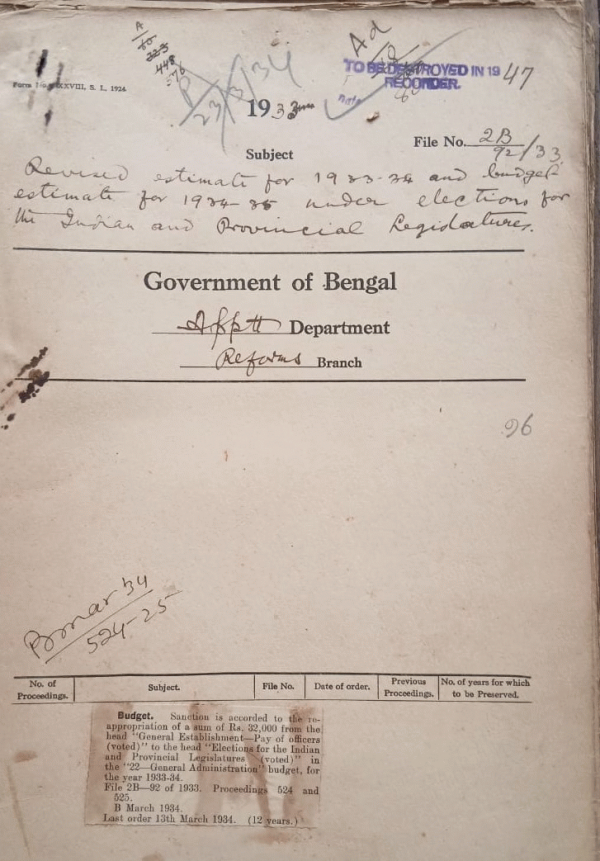 A
Ad
Form No. XXVIII, S. L., 1924.
23/3/34
TO BE DESTROYED IN 1947
RECORDER.
1933
File No. 2B
92/33
Subject
Revised estimate for 1933-34 and budget
estimate for 1934-35 under elections for
the Indian and Provincial Legislatures.
Government of Bengal
Apptt Department
Reforms Branch
96
B mar '34
524-25
No. of Proceedings. Subject. File No. Date of order. Previous Proceedings. No. of years for which to be Preserved.
Budget. Sanction is accorded to the re-
appropriation of a sum of Rs. 32,000 from the
head "General Establishment—Pay of officers
(voted)" to the head "Elections for the Indian
and Provincial Legislatures (voted)" in
the "22—General Administration" budget, for
the year 1933-34.
File 2B—92 of 1933. Proceedings 524 and
525.
B March 1934.
Last order 13th March 1934. (12 years.)